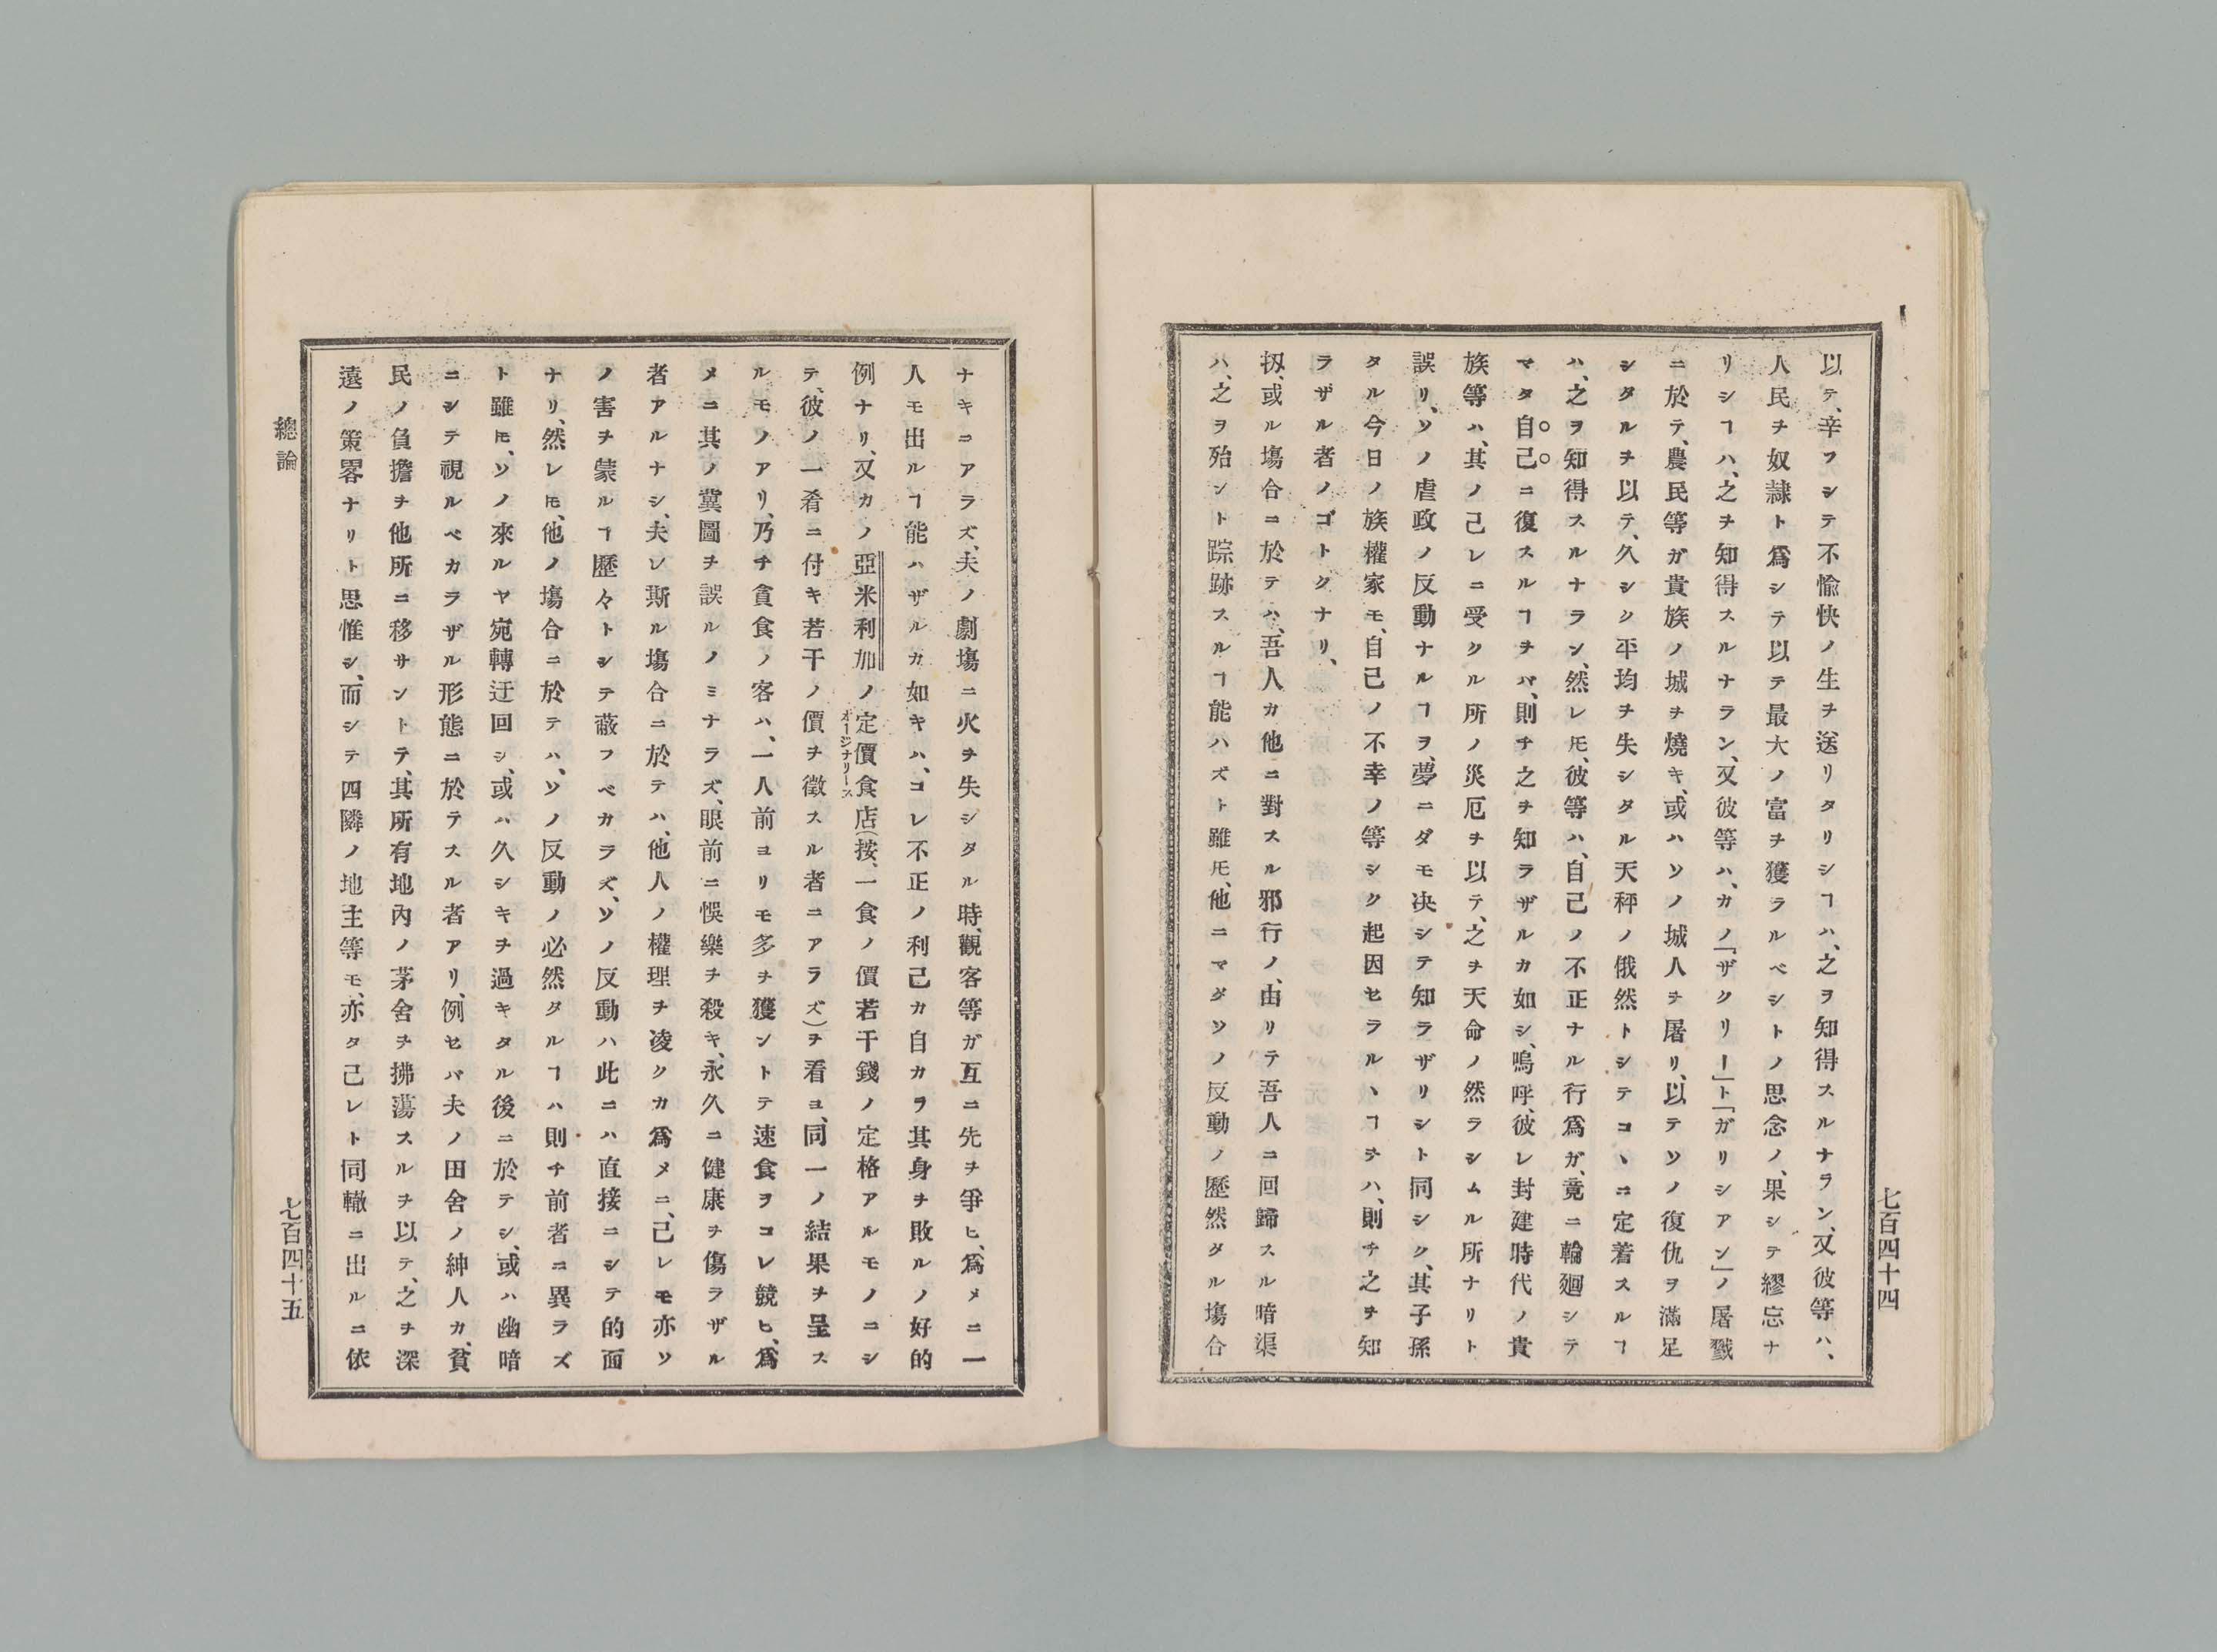 以テ、辛フシテ不愉快ノ生ヲ送リタリシヿハ、之ヲ知得スルナラン、又彼等ハ、
人民ヲ奴隷ト爲シテ以テ最大ノ富ヲ獲ラルベシトノ思念ノ、果シテ繆忘ナ
リシヿハ、之ヲ知得スルナラン、又彼等ハ、カノ「ザクリー」ト「ガリシアン」ノ屠戮
ニ於テ、農民等ガ貴族ノ城ヲ燒キ、或ハソノ城人ヲ屠リ、以テソノ復仇ヲ滿足
シタルヲ以テ、久シク平均ヲ失シタル天秤ノ俄然トシテコヽニ定着スルヿ
ハ、之ヲ知得スルナラン、然レ𪜈、彼等ハ、自己ノ不正ナル行爲ガ、竟ニ輪廻シテ
マタ自己ニ復スルヿヲバ、則チ之ヲ知ラザルカ如シ、嗚呼、彼レ封建時代ノ貴
族等ハ、其ノ己レニ受クル所ノ災厄ヲ以テ、之ヲ天命ノ然ラシムル所ナリト
誤リ、ソノ虐政ノ反動ナルヿヲ、夢ニダモ决シテ知ラザリシト同シク、其子孫
タル今日ノ族權家モ、自己ノ不幸ノ等シク起因セラルヽヿヲハ、則チ之ヲ知
ラザル者ノゴトクナリ、
扨、或ル塲合ニ於テハ、吾人カ他ニ對スル邪行ノ、由リテ吾人ニ回歸スル暗渠
ハ、之ヲ殆ント踪跡スルヿ能ハズト雖𪜈、他ニマタソノ反動ノ歷然タル塲合
七百四十四
ナキニアラズ、夫ノ劇塲ニ火ヲ失シタル時、觀客等ガ互ニ先ヲ爭ヒ、爲メニ一
人モ出ルヿ能ハザルカ如キハ、コレ不正ノ利己カ自カラ其身ヲ敗ルノ好的
例ナリ、又カノ亞米利加ノ定價食店(按、一食ノ價若干錢ノ定格アルモノニシ
オージナリース
テ、彼ノ一肴ニ付キ若干ノ價ヲ徵スル者ニアラズ)ヲ看ヨ、同一ノ結果ヲ呈ス
ルモノアリ、乃チ貪食ノ客ハ、一人前ヨリモ多ヲ獲ントテ速食ヲコレ競ヒ、爲
メニ其ノ冀圖ヲ誤ルノミナラズ、眼前ニ悞樂ヲ殺キ、永久ニ健康ヲ傷ラザル
者アルナシ、夫レ斯ル塲合ニ於テハ、他人ノ權理ヲ凌クカ爲メニ、己レモ亦ソ
ノ害ヲ蒙ルヿ歷々トシテ蔽フベカラズ、ソノ反動ハ此ニハ直接ニシテ的面
ナリ、然レ𪜈、他ノ塲合ニ於テハ、ソノ反動ノ必然タルヿハ則チ前者ニ異ラズ
ト雖𪜈、ソノ來ルヤ宛轉迂回シ、或ハ久シキヲ過キタル後ニ於テシ、或ハ幽暗
ニシテ視ルベカラザル形態ニ於テスル者アリ、例セバ夫ノ田舍ノ紳人カ、貧
民ノ負擔ヲ他所ニ移サントテ、其所有地內ノ茅舍ヲ拂蕩スルヲ以テ、之ヲ深
遠ノ策畧ナリト思惟シ、而シテ四隣ノ地主等モ、亦タ己レト同轍ニ出ルニ依
總論
七百四十五